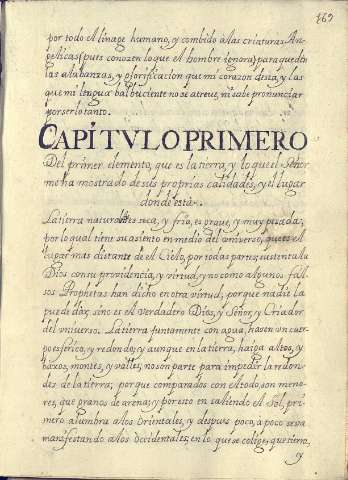 169
por todo el linage humano, y combido a las criaturas An-
gelicas (pues conozen lo que el hombre ignora) para que den
las alabanzas, y glorificacion que mi corazon desea, y las
que mi lengua balbuciente no se atreve, ni sabe pronunciar
por ser lo tanto.
CAPÍTVLO PRIMERO
Del primer elemento, que es la tierra, y lo que el Señor
me ha mostrado de sus proprias calidades, y el lugar
donde està.
La tierra naturalmte es seca, y fria, es grave, y muy pesada;
por lo qual tiene su asiento en medio del universo, que es el
lugar mas distante de el Cielo, por todas partes; sustentala
Dios con su providencia, y virtud, y no como algunos fal-
sos Prophetas han dicho en otra virtud, porque nadie la
puede dar, sino es el verdadero Dios, y Señor, y Criador
del vniverso. La tierra juntamente con agua, hasen un cuer-
po esferico, y redondo; y aunque en la tierra, haiga altos, y
baxos, montes, y valles, no son parte para impedir la redon-
des de la tierra; porque comparados con el todo son meno-
res, que granos de arena; y por esto en saliendo el Sol, pri-
mero alumbra a los Orientales, y despues poco, a poco se va
manifestando a los Occidentales, en lo que se colige, que tierra,
y